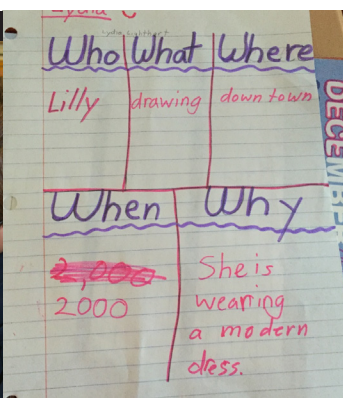 Who What Where
Lilly drawing down town
When Why
2,000
2000
She is
wearing
a modern
dress.
DECEMBER